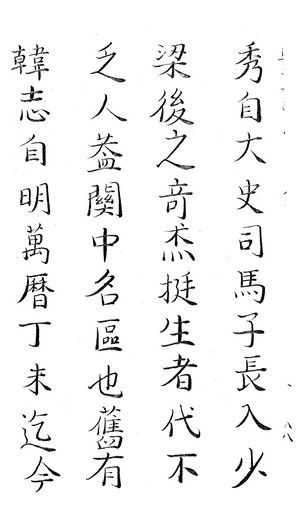 秀自大史司馬子長入少
梁後之竒杰挺生者代不
乏人葢闗中名區也舊有
韓志自明萬暦丁未迄今